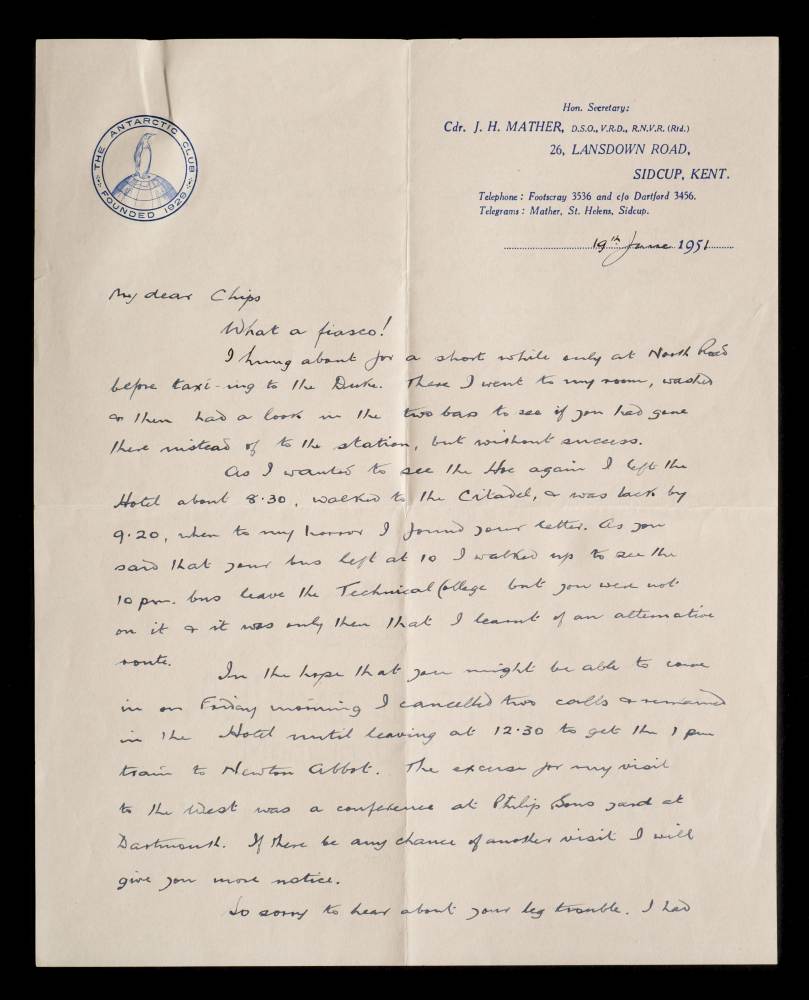 THE ANTARCTIC CLUB
FOUNDED 1929
Hon. Secretary:
Cdr. J. H. MATHER, D.S.O., V.R.D., R.N.V.R. (Rtd.)
26, LANSDOWN ROAD,
SIDCUP, KENT.
Telephone: Footscray 3536 and c/o Dartford 3456.
Telegrams: Mather, St. Helens, Sidcup.
19th June 1951
My dear Chips
What a fiasco!
I hung about for a short while only at North Road
before taxi-ing to the Duke. There I went to my room, washed
& then had a look in the two bars to see if you had gone
there instead of to the station, but without success.
As I wanted to see the Hoe again I left the
Hotel about 8.30, walked to the Citadel, & was back by
9.20, when to my horror I found your letter. As you
said that your bus left at 10 I walked up to see the
10 pm. bus leave the Technical College but you were not
on it & it was only then that I learnt of an alternative
route.
In the hope that you might be able to come
in on Friday morning I cancelled two calls & remained
in the Hotel until leaving at 12.30 to get the 1 pm
train to Newton Abbot. The excuse for my visit
to the West was a conference at Philip Sons yard at
Dartmouth. If there be any chance of another visit I will
give you more notice.
So sorry to hear about your leg trouble. I had